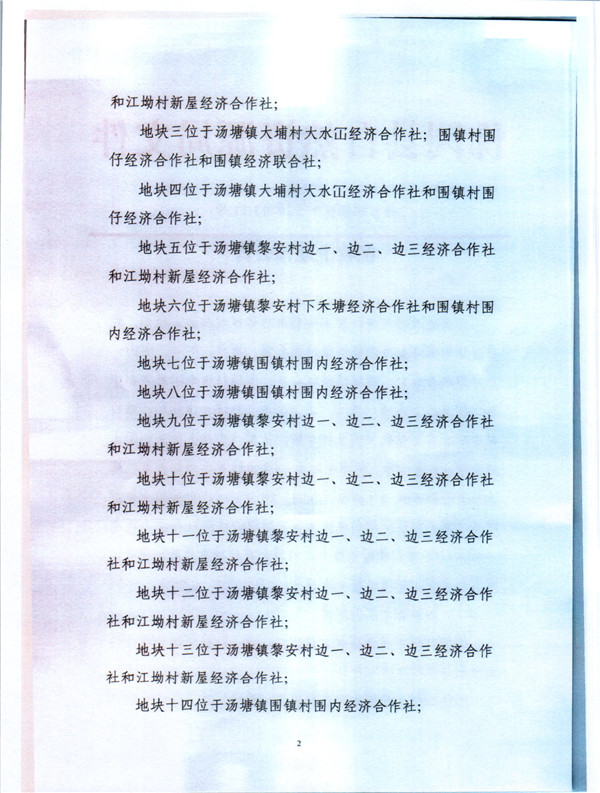 和江坳村新屋经济合作社；
地块三位于汤塘镇大埔村大水𡶨经济合作社；围镇村围
仔经济合作社和围镇经济联合社；
地块四位于汤塘镇大埔村大水𡶨经济合作社和围镇村围
仔经济合作社；
地块五位于汤塘镇黎安村边一、边二、边三经济合作社
和江坳村新屋经济合作社；
地块六位于汤塘镇黎安村下禾塘经济合作社和围镇村围
内经济合作社；
地块七位于汤塘镇围镇村围内经济合作社；
地块八位于汤塘镇围镇村围内经济合作社；
地块九位于汤塘镇黎安村边一、边二、边三经济合作社
和江坳村新屋经济合作社；
地块十位于汤塘镇黎安村边一、边二、边三经济合作社
和江坳村新屋经济合作社；
地块十一位于汤塘镇黎安村边一、边二、边三经济合作
社和江坳村新屋经济合作社；
地块十二位于汤塘镇黎安村边一、边二、边三经济合作
社和江坳村新屋经济合作社；
地块十三位于汤塘镇黎安村边一、边二、边三经济合作
社和江坳村新屋经济合作社；
地块十四位于汤塘镇围镇村围内经济合作社；
2